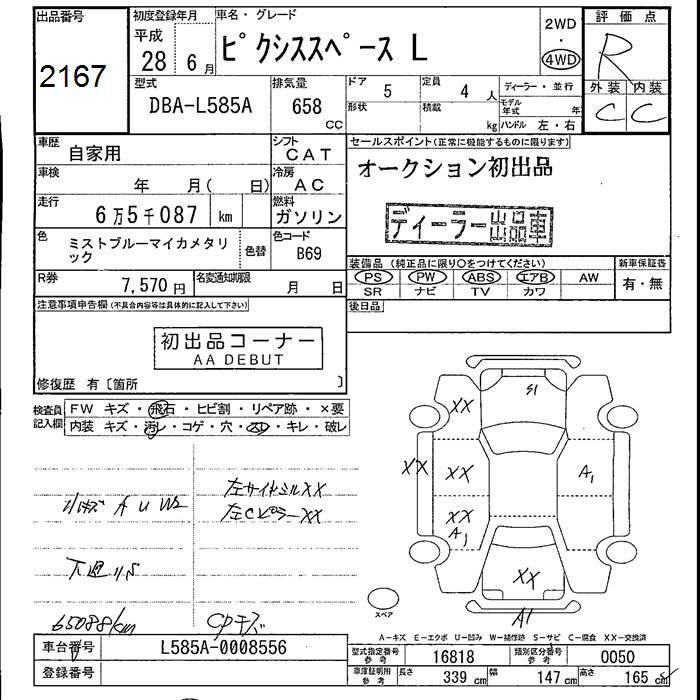 出品番号
2167
初度登録年月
平成
28年 6月
車名・グレード
ピクシススペース L
2WD
・
4WD
評価点
R
型式
DBA-L585A
排気量
658
CC
ドア
5
定員
4 人
ディーラー・並行
形状
積載
kg
モデル年式
年
ハンドル 左・右
外装 内装
C C
車歴
自家用
シフト
CAT
セールスポイント(正常に機能するものに限ります)
オークション初出品
車検
年 月( 日)
冷房
AC
走行
6万5千087 km
燃料
ガソリン
ディーラー出品車
色
ミストブルーマイカメタリック
色替
色コード
B69
装備品(純正品に限り○をつけてください)
新車保証書
PS PW ABS エアB AW
有・無
SR ナビ TV カワ
R券
7,570円
名変通知期限
月 日
後日品
注意事項申告欄(不具合内容等は具体的に記入して下さい)
初出品コーナー
AA DEBUT
修復歴 有〔箇所 〕
検査員記入欄
FW キズ・飛石・ヒビ割・リペア跡・×要
内装 キズ・汚れ・コゲ・穴・スレ・キレ・破レ
S1
XX
XX
XX
A1
XX
A1
XX
A1
小キズ A U W2
左サイドシルXX
左CピラーXX
下廻りS
65088km
CPキズ
スペア
A-キズ E-エクボ U-凹み W-補修跡 S-サビ C-腐食 XX-交換済
車台番号
L585A-0008556
登録番号
型式指定番号
参考
16818
類別区分番号
参考
0050
車庫証明用
参考
長さ
339 cm
幅
147 cm
高さ
165 cm